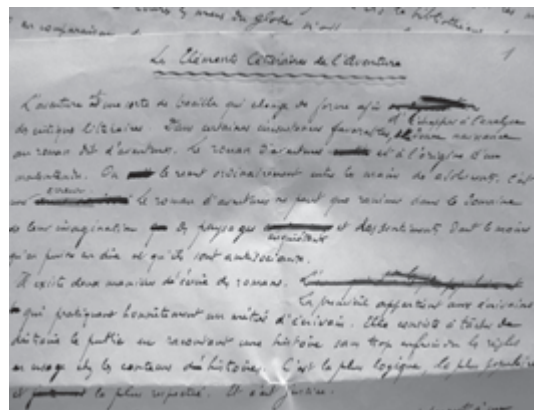 en comparaison
Les Eléments Littéraires de l'Aventure
1
L'aventure est une sorte de bacille qui change de forme afin
d'échapper à l'analyse
des critiques littéraires. Dans certaines circonstances favorables, donne naissance
au roman dit d'aventures. Le roman d'aventures est à l'origine d'un
malentendu. On le voit ordinairement entre les mains de adolescents. C'est
une erreur Le roman d'aventures ne peut que ranimer dans le domaine
de leur imagination des paysages inquiétants et des sentiments dont le moins
qu'on puisse en dire est qu'ils sont antisociaux.
Il existe deux manières d'écrire des romans.
La première appartient aux écrivains
qui pratiquent honnêtement un métier d'écrivain. Elle consiste à tâcher de
distraire le public en racontant une histoire sans trop enfreindre les règles
en usage chez les conteurs d'histoires. C'est la plus logique, la plus populaire
et la plus respectée. Et c'est justice.